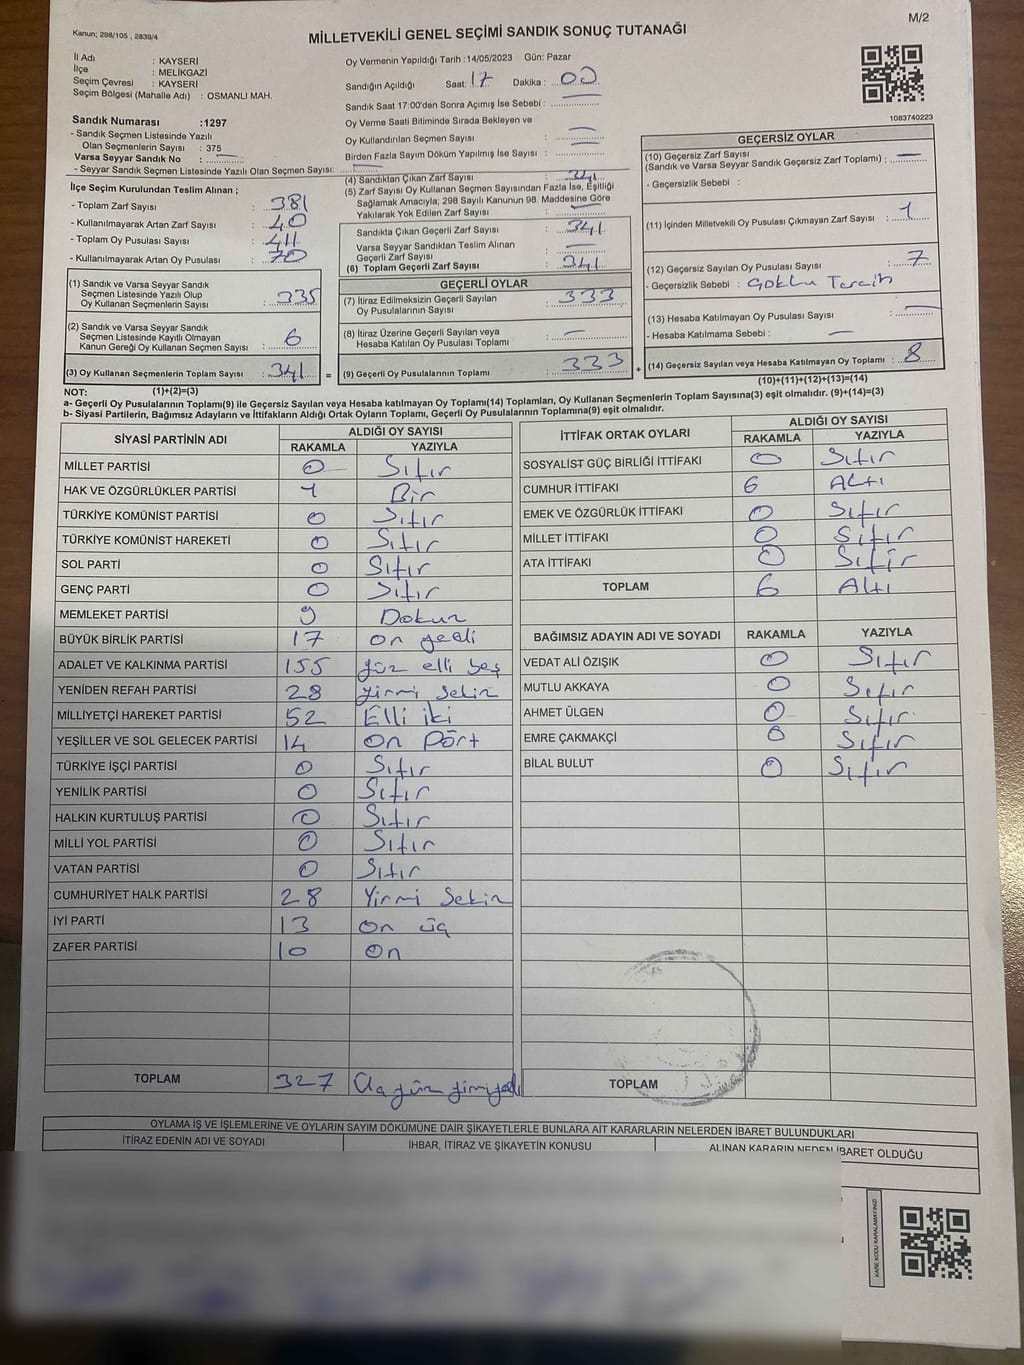 M/2
Kanun; 298/105 , 2839/4
MİLLETVEKİLİ GENEL SEÇİMİ SANDIK SONUÇ TUTANAĞI
İl Adı : KAYSERİ
İlçe : MELİKGAZİ
Seçim Çevresi : KAYSERİ
Seçim Bölgesi (Mahalle Adı) : OSMANLI MAH.
Oy Vermenin Yapıldığı Tarih :14/05/2023 Gün: Pazar
Sandığın Açıldığı Saat: 17 Dakika : 00
Sandık Saat 17:00'den Sonra Açımış İse Sebebi :
Oy Verme Saati Bitiminde Sırada Bekleyen ve
Oy Kullandırılan Seçmen Sayısı : —
Birden Fazla Sayım Döküm Yapılmış İse Sayısı :
1083740223
Sandık Numarası :1297
- Sandık Seçmen Listesinde Yazılı
Olan Seçmenlerin Sayısı : 375
Varsa Seyyar Sandık No : —
- Seyyar Sandık Seçmen Listesinde Yazılı Olan Seçmen Sayısı: —
İlçe Seçim Kurulundan Teslim Alınan ;
- Toplam Zarf Sayısı : 381
- Kullanılmayarak Artan Zarf Sayısı : 40
- Toplam Oy Pusulası Sayısı : 411
- Kullanılmayarak Artan Oy Pusulası : 70
(1) Sandık ve Varsa Seyyar Sandık
Seçmen Listesinde Yazılı Olup
Oy Kullanan Seçmenlerin Sayısı : 335
(2) Sandık ve Varsa Seyyar Sandık
Seçmen Listesinde Kayıtlı Olmayan
Kanun Gereği Oy Kullanan Seçmen Sayısı : 6
(3) Oy Kullanan Seçmenlerin Toplam Sayısı : 341 =
(4) Sandıktan Çıkan Zarf Sayısı : 341
(5) Zarf Sayısı Oy Kullanan Seçmen Sayısından Fazla İse, Eşitliği
Sağlamak Amacıyla; 298 Sayılı Kanunun 98. Maddesine Göre
Yakılarak Yok Edilen Zarf Sayısı : —
Sandıkta Çıkan Geçerli Zarf Sayısı : 341
Varsa Seyyar Sandıktan Teslim Alınan
Geçerli Zarf Sayısı : —
(6) Toplam Geçerli Zarf Sayısı : 341
GEÇERLİ OYLAR
(7) İtiraz Edilmeksizin Geçerli Sayılan
Oy Pusulalarının Sayısı : 333
(8) İtiraz Üzerine Geçerli Sayılan veya
Hesaba Katılan Oy Pusulası Toplamı : —
(9) Geçerli Oy Pusulalarının Toplamı : 333 +
GEÇERSİZ OYLAR
(10) Geçersiz Zarf Sayısı
(Sandık ve Varsa Seyyar Sandık Geçersiz Zarf Toplamı) : —
- Geçersizlik Sebebi :
(11) İçinden Milletvekili Oy Pusulası Çıkmayan Zarf Sayısı : 1
(12) Geçersiz Sayılan Oy Pusulası Sayısı : 7
- Geçersizlik Sebebi : Çoklu Tercih
(13) Hesaba Katılmayan Oy Pusulası Sayısı : —
- Hesaba Katılmama Sebebi : —
(14) Geçersiz Sayılan veya Hesaba Katılmayan Oy Toplamı : 8
NOT: (1)+(2)=(3) (10)+(11)+(12)+(13)=(14)
a- Geçerli Oy Pusulalarının Toplamı(9) ile Geçersiz Sayılan veya Hesaba Katılmayan Oy Toplamı(14) Toplamları, Oy Kullanan Seçmenlerin Toplam Sayısına(3) eşit olmalıdır. (9)+(14)=(3)
b- Siyasi Partilerin, Bağımsız Adayların ve İttifakların Aldığı Ortak Oyların Toplamı, Geçerli Oy Pusulalarının Toplamına(9) eşit olmalıdır.
SİYASİ PARTİNİN ADI ALDIĞI OY SAYISI
RAKAMLA YAZIYLA
MİLLET PARTİSİ 0 Sıfır
HAK VE ÖZGÜRLÜKLER PARTİSİ 1 Bir
TÜRKİYE KOMÜNİST PARTİSİ 0 Sıfır
TÜRKİYE KOMÜNİST HAREKETİ 0 Sıfır
SOL PARTİ 0 Sıfır
GENÇ PARTİ 0 Sıfır
MEMLEKET PARTİSİ 9 Dokuz
BÜYÜK BİRLİK PARTİSİ 17 on yedi
ADALET VE KALKINMA PARTİSİ 155 yüz elli beş
YENİDEN REFAH PARTİSİ 28 yirmi sekiz
MİLLİYETÇİ HAREKET PARTİSİ 52 Elli iki
YEŞİLLER VE SOL GELECEK PARTİSİ 14 On Dört
TÜRKİYE İŞÇİ PARTİSİ 0 Sıfır
YENİLİK PARTİSİ 0 Sıfır
HALKIN KURTULUŞ PARTİSİ 0 Sıfır
MİLLİ YOL PARTİSİ 0 Sıfır
VATAN PARTİSİ 0 Sıfır
CUMHURİYET HALK PARTİSİ 28 Yirmi Sekiz
İYİ PARTİ 13 On üç
ZAFER PARTİSİ 10 On
TOPLAM 327 Üç yüz yirmi yedi
İTTİFAK ORTAK OYLARI ALDIĞI OY SAYISI
RAKAMLA YAZIYLA
SOSYALİST GÜÇ BİRLİĞİ İTTİFAKI 0 Sıfır
CUMHUR İTTİFAKI 6 Altı
EMEK VE ÖZGÜRLÜK İTTİFAKI 0 Sıfır
MİLLET İTTİFAKI 0 Sıfır
ATA İTTİFAKI 0 Sıfır
TOPLAM 6 Altı
BAĞIMSIZ ADAYIN ADI VE SOYADI RAKAMLA YAZIYLA
VEDAT ALİ ÖZIŞIK 0 Sıfır
MUTLU AKKAYA 0 Sıfır
AHMET ÜLGEN 0 Sıfır
EMRE ÇAKMAKÇİ 0 Sıfır
BİLAL BULUT 0 Sıfır
TOPLAM
OYLAMA İŞ VE İŞLEMLERİNE VE OYLARIN SAYIM DÖKÜMÜNE DAİR ŞİKAYETLERLE BUNLARA AİT KARARLARIN NELERDEN İBARET BULUNDUKLARI
İTİRAZ EDENİN ADI VE SOYADI İHBAR, İTİRAZ VE ŞİKAYETİN KONUSU ALINAN KARARIN NEDEN İBARET OLDUĞU
KARE KODU KARALAMAYINIZ!